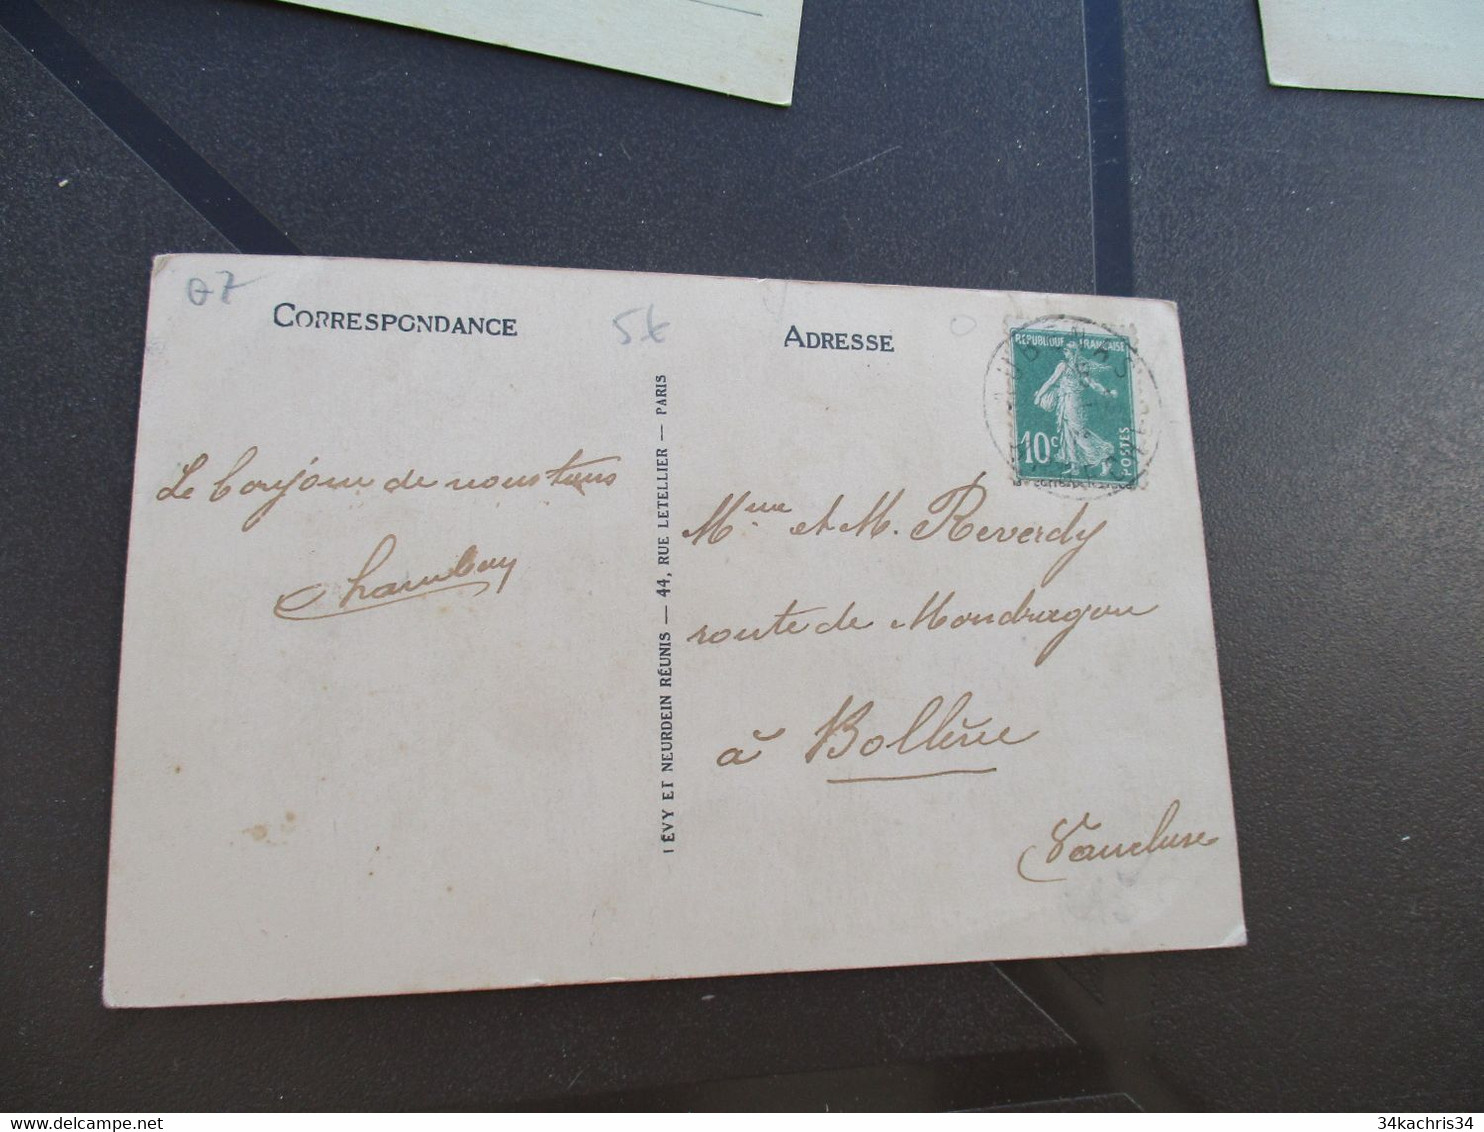 07
CORRESPONDANCE
5€
ADRESSE
RÉPUBLIQUE FRANÇAISE
10c
POSTES
Le bonjour de nous tous
Chambon
LÉVY ET NEURDEIN RÉUNIS — 44, RUE LETELLIER — PARIS
Mme et M. Reverdy
route de Mondragon
à Bollène
Vaucluse
34kachris34